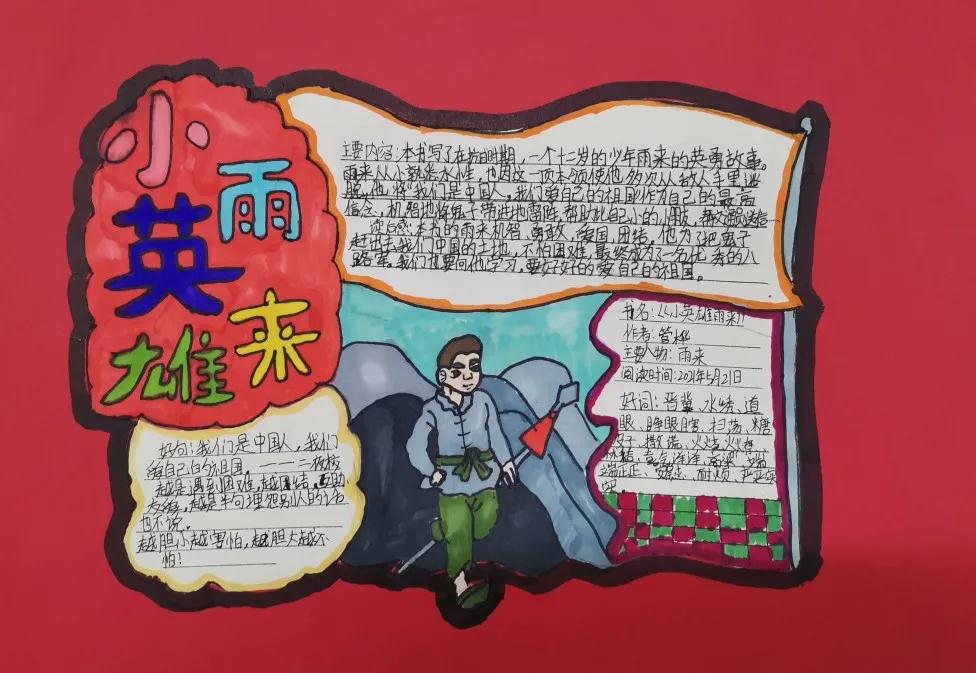 小英雄
雨来
主要内容:本书写了在抗日时期,一个十二岁的少年雨来的英勇故事。
雨来从小就熟悉水性,也因这一项本领使他多次从敌人手里逃
脱,他将“我们是中国人,我们爱自己的祖国”作为自己的最高
信念,机智地将鬼子带进地雷阵,帮助比自己小的
读后感:本书的雨来机智、勇敢、爱国、团结,他为了把鬼子
赶出去我们中国的土地,不怕困难,最终成为了一名优秀的八
路军。我们也要向他学习,要好好的爱自己的祖国。
书名:《小英雄雨来》
作者:管桦
主要人物:雨来
阅读时间:2021年5月21日
好词:晋冀、水性、道
眼、睁眼瞎、扫荡、糖
撒谎、火
端
端正正、耐烦、严严实
实
好句:我们是中国人,我们
爱自己的祖国。
越是遇到困难,越团结,互助
友爱,越是半句埋怨别人的话
也不说。
越胆小越害怕,越胆大越不
怕!